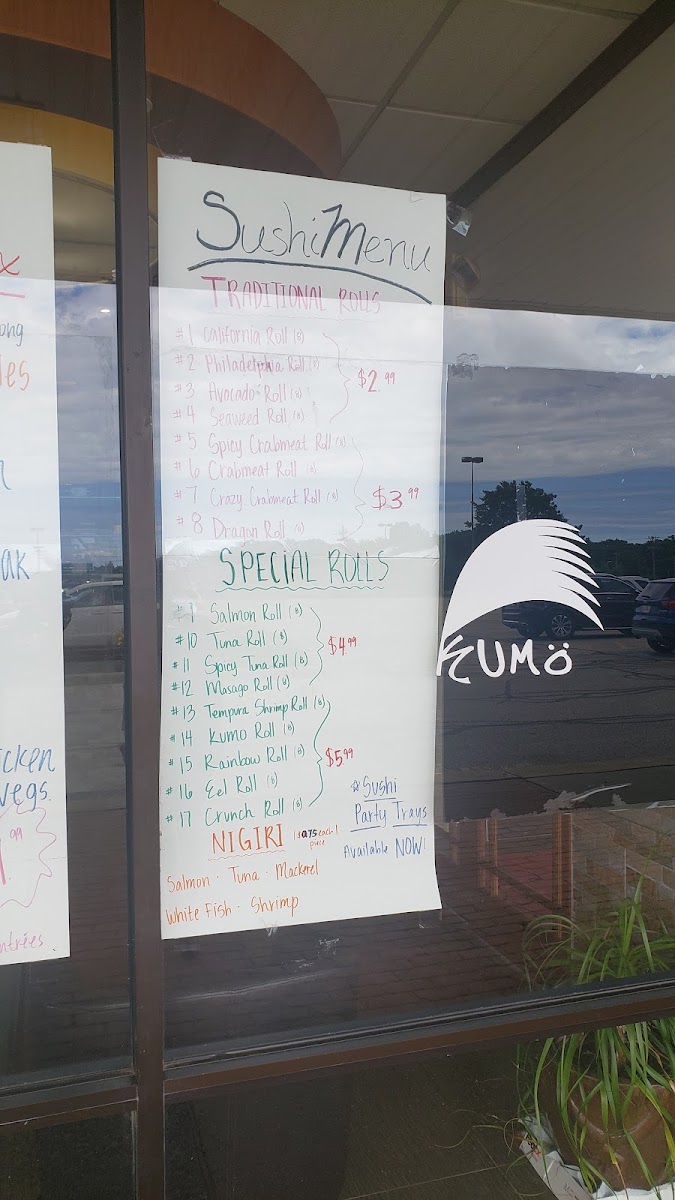 Sushi Menu
TRADITIONAL ROLLS
#1 California Roll (8)
#2 Philadelphia Roll (8)
#3 Avocado Roll (8)
#4 Seaweed Roll (8)
$2.99
#5 Spicy Crabmeat Roll (8)
#6 Crabmeat Roll (8)
#7 Crazy Crabmeat Roll (8)
#8 Dragon Roll (8)
$3.99
SPECIAL ROLLS
#9 Salmon Roll (8)
#10 Tuna Roll (8)
#11 Spicy Tuna Roll (8)
#12 Masago Roll (8)
$4.99
#13 Tempura Shrimp Roll (8)
#14 Kumo Roll (8)
#15 Rainbow Roll (8)
#16 Eel Roll (8)
#17 Crunch Roll (8)
$5.99
NIGIRI ($0.75 each piece)
Salmon · Tuna · Mackerel
White Fish · Shrimp
☆Sushi
Party Trays
Available NOW!
KUMö
ong
les
ak
cken
vegs.
.99
ntrées